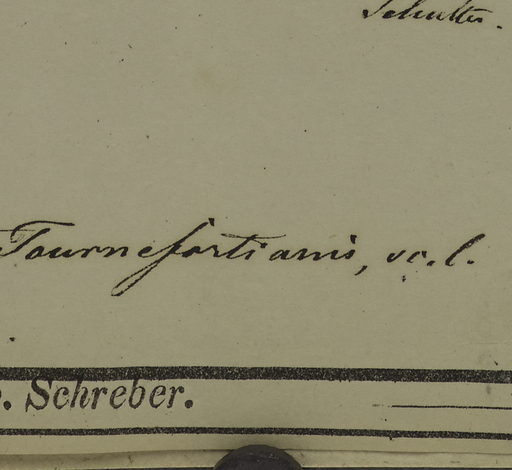 Schultes.
Tournefortianis, sc. l.
. Schreber.